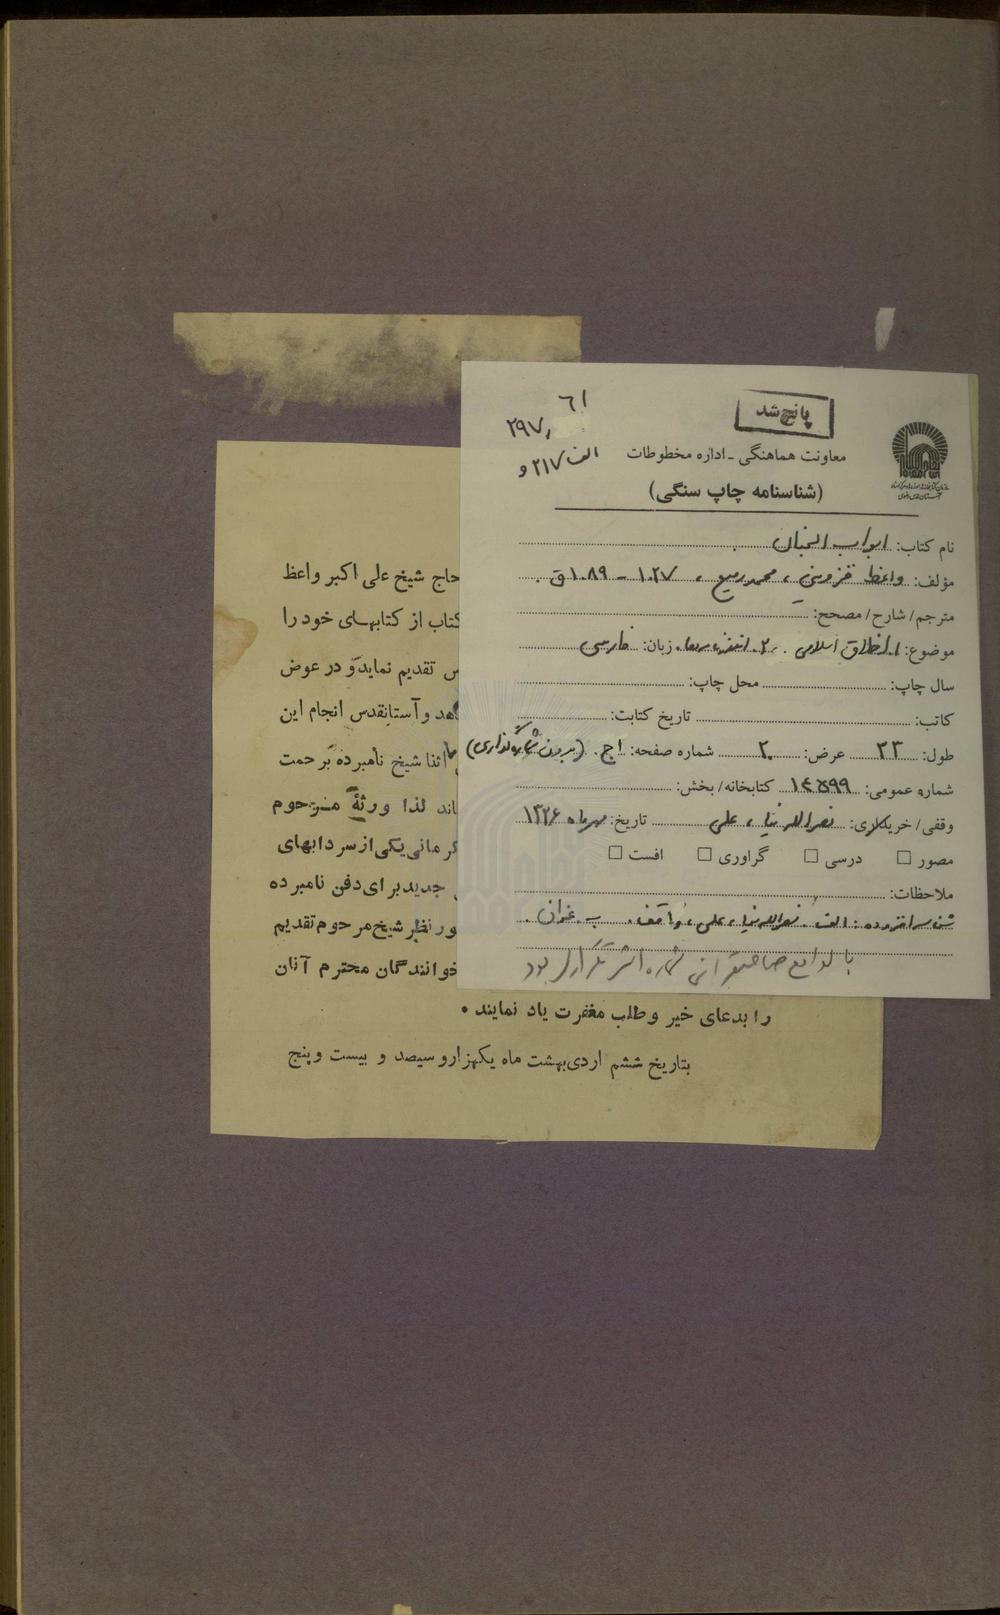 پانچ شد
۶۱
۲۹۷٫
الف ۲۱۷ و
معاونت هماهنگی - اداره مخطوطات
(شناسنامه چاپ سنگی)
نام کتاب: ابواب الجنان
مؤلف: واعظ قزوینی، محمد رفیع، ۱۰۲۷ - ۱۰۸۹ ق.
مترجم/ شارح/ مصحح:
موضوع: ۱. اخلاق اسلامی. ۲. زبان: فارسی
سال چاپ: محل چاپ:
کاتب: تاریخ کتابت:
طول: ۳۳ عرض: ۲۰ شماره صفحه: ۱ج. (بدون شماره‌گذاری)
شماره عمومی: ۱۴۵۹۹ کتابخانه/ بخش:
وقفی/ خریداری: نصراللهنیا، علی تاریخ: مهرماه ۱۳۲۶
مصور □ درسی □ گراوری □ افست □
ملاحظات:
شناسه افزوده: الف. نصراللهنیا، علی، واقف. ب. عنوان.
با شماره اش تکراری بود
حاج شیخ علی اکبر واعظ
کتاب از کتابهای خود را
تقدیم نماید و در عوض
و آستانقدس انجام این
اثنا شیخ نامبرده برحمت
لذا ورثهٔ مرحوم
یکی از سردابهای
جدید برای دفن نامبرده
نظر شیخ مرحوم تقدیم
خوانندگان محترم آنان
را بدعای خیر و طلب مغفرت یاد نمایند •
بتاریخ ششم اردی‌بهشت ماه یکهزار و سیصد و بیست و پنج